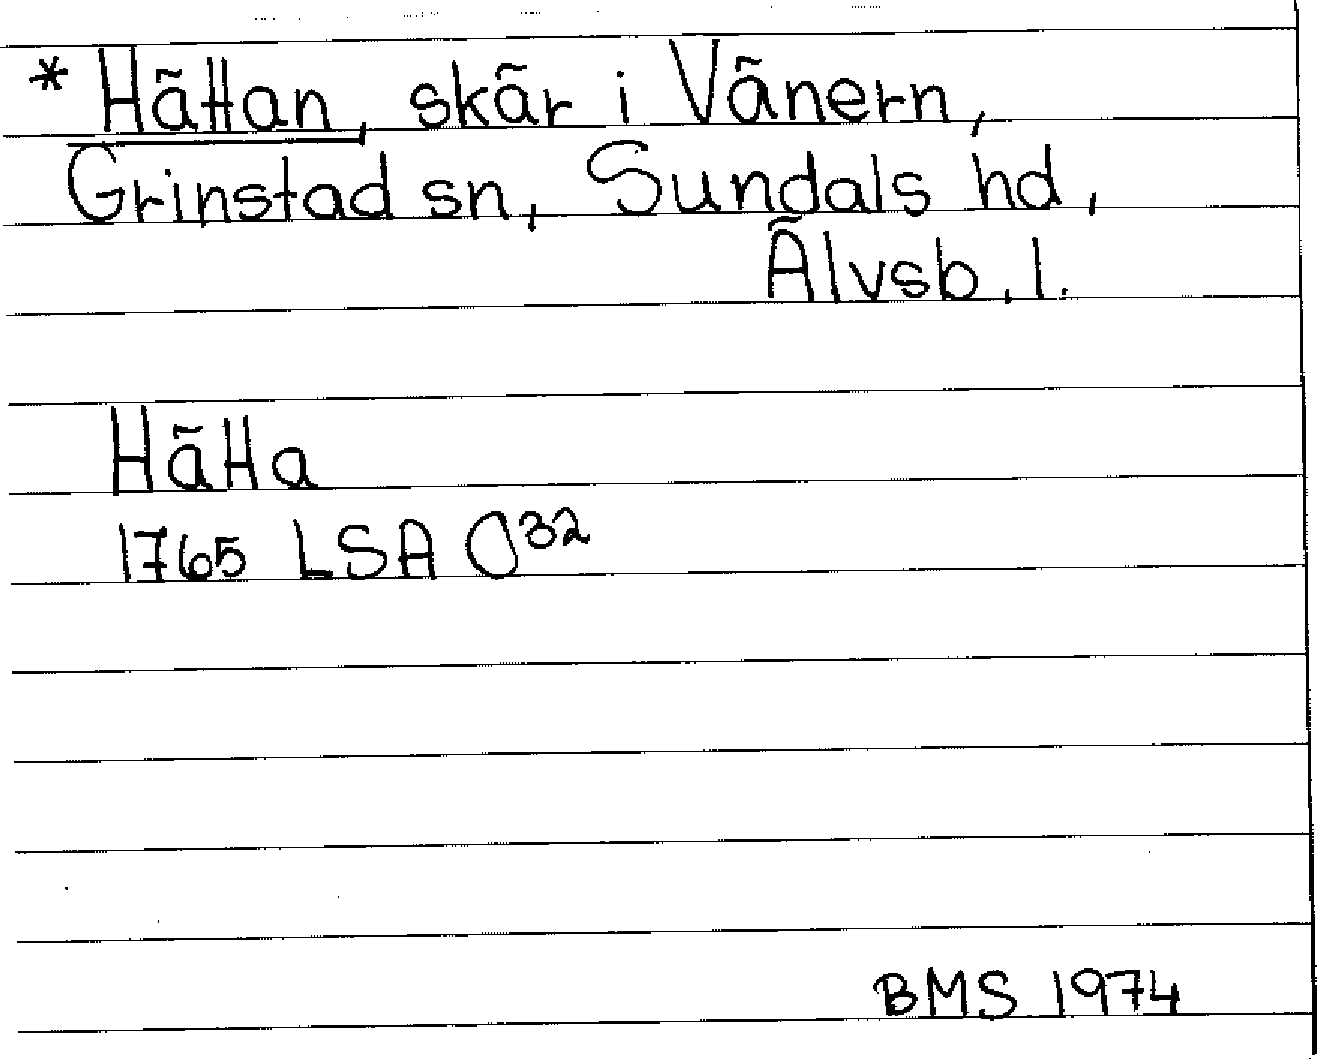 * Hättan, skär i Vänern,
Grinstad sn, Sundals hd,
Älvsb. l.
Hätta
1765 LSA O 32
BMS 1974